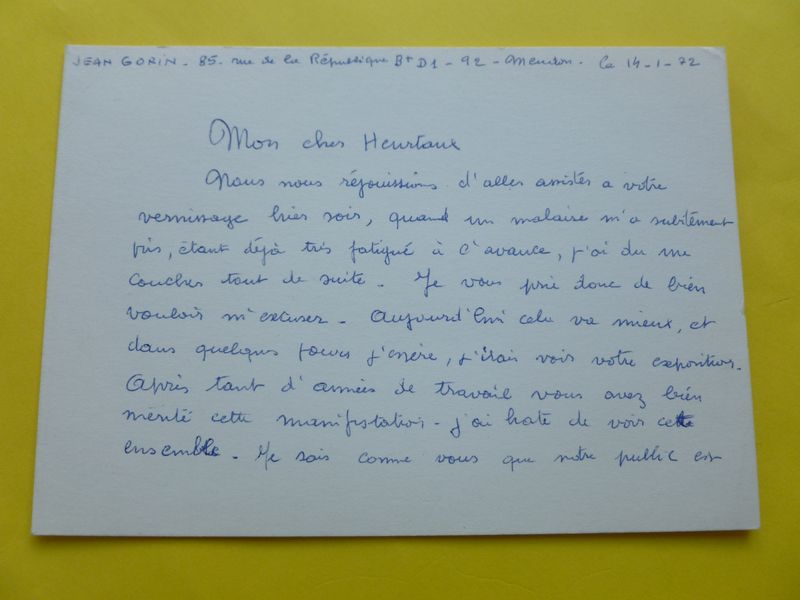 JEAN GORIN - 85. rue de la République Bt D1 - 92 - Meudon. Le 14-1-72
Mon cher Heurtaux
Nous nous réjouissions d'aller assister a votre
vernissage hier soir, quand un malaise m'a subitement
pris, étant déjà très fatigué à l'avance, j'ai du me
coucher tout de suite. Je vous prie donc de bien
vouloir m'excuser. Aujourd'hui cela va mieux, et
dans quelques jours j'espère, j'irais voir votre exposition.
Après tant d'années de travail vous avez bien
mérité cette manifestation. j'ai hate de voir cette
ensemble. Je sais comme vous que notre public est